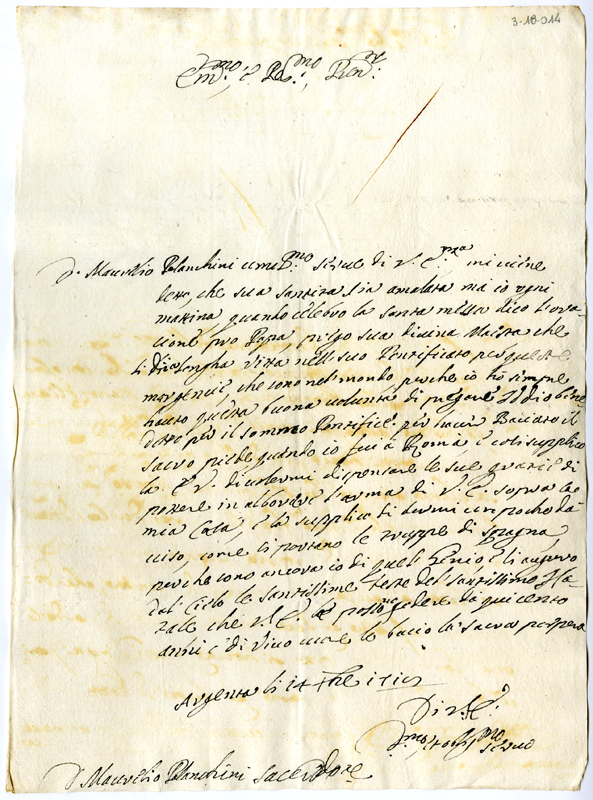 3-18-014
Em.mo, e Re.mo, Pren.pe
D. Maurelio Blanchini umi.mo servo di V. E.nza mi viene
detto, che sua santita sia amalata ma io ogni
mattina quando celebro la santa messa dico l'ora-
cione pro Papa priego sua divina Maesta che
li dia longha vitta nell suo Pontificato per queste
che sono nel mondo perche io hò sempre
hauto questa buona volunta di pregare Iddio bene
detto per il sommo Pontifice per haver Bacciato il
sacro piede quando io fui à Roma, e cosi supplico
la E. V. di volermi dispensare le sue grazie di
potere in alborare l'arma di V. E. sopra la
mia Casa, e la supplico di darmi un pocho da
viso, come si portano le truppe di spagna
perche sono ancora io di quell Genio, e li auguro
dal Cielo le santissime feste del santissimo Na-
tale che V. E. le possa vedere da quicento
anni e di vivo cuore le bacio la sacra porpora
Argenta li 24 Xbre
Di V. E.
servo
D. Maurelio Blanchini Sacerdote